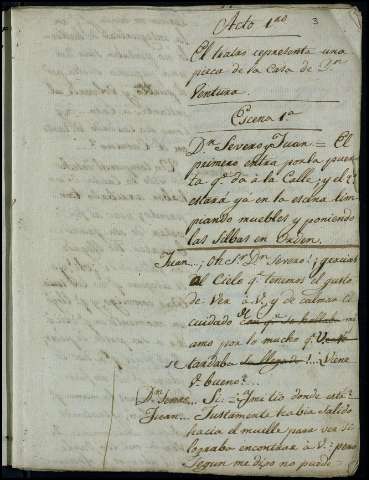 Acto 1.º 3
El teatro representa una
pieza de la Casa de Dn
Ventura.
Escena 1.ª
Dn Severo y Juan = El
primero entra por la puer
ta q.e da à la Calle, y el 2.º
estará ya en la escena lim
piando muebles y poniendo
las Sillas en Orden.
Juan...¡Oh Sr Dn Severo! ¡gracias
al Cielo q.e tenemos el gusto
de Ver à V. y de calmar el
cuidado con q.e se hallaba mi
amo por lo mucho q.e
se tardaba su llegada!.. ¿Viene
V. bueno?...
Dn Severo... Si. = ¿Y me tio donde está?
Juan... Justamente había salido
hacia el muelle para ver si
lograba encontrar à V.; pero
segun me dijo no puede